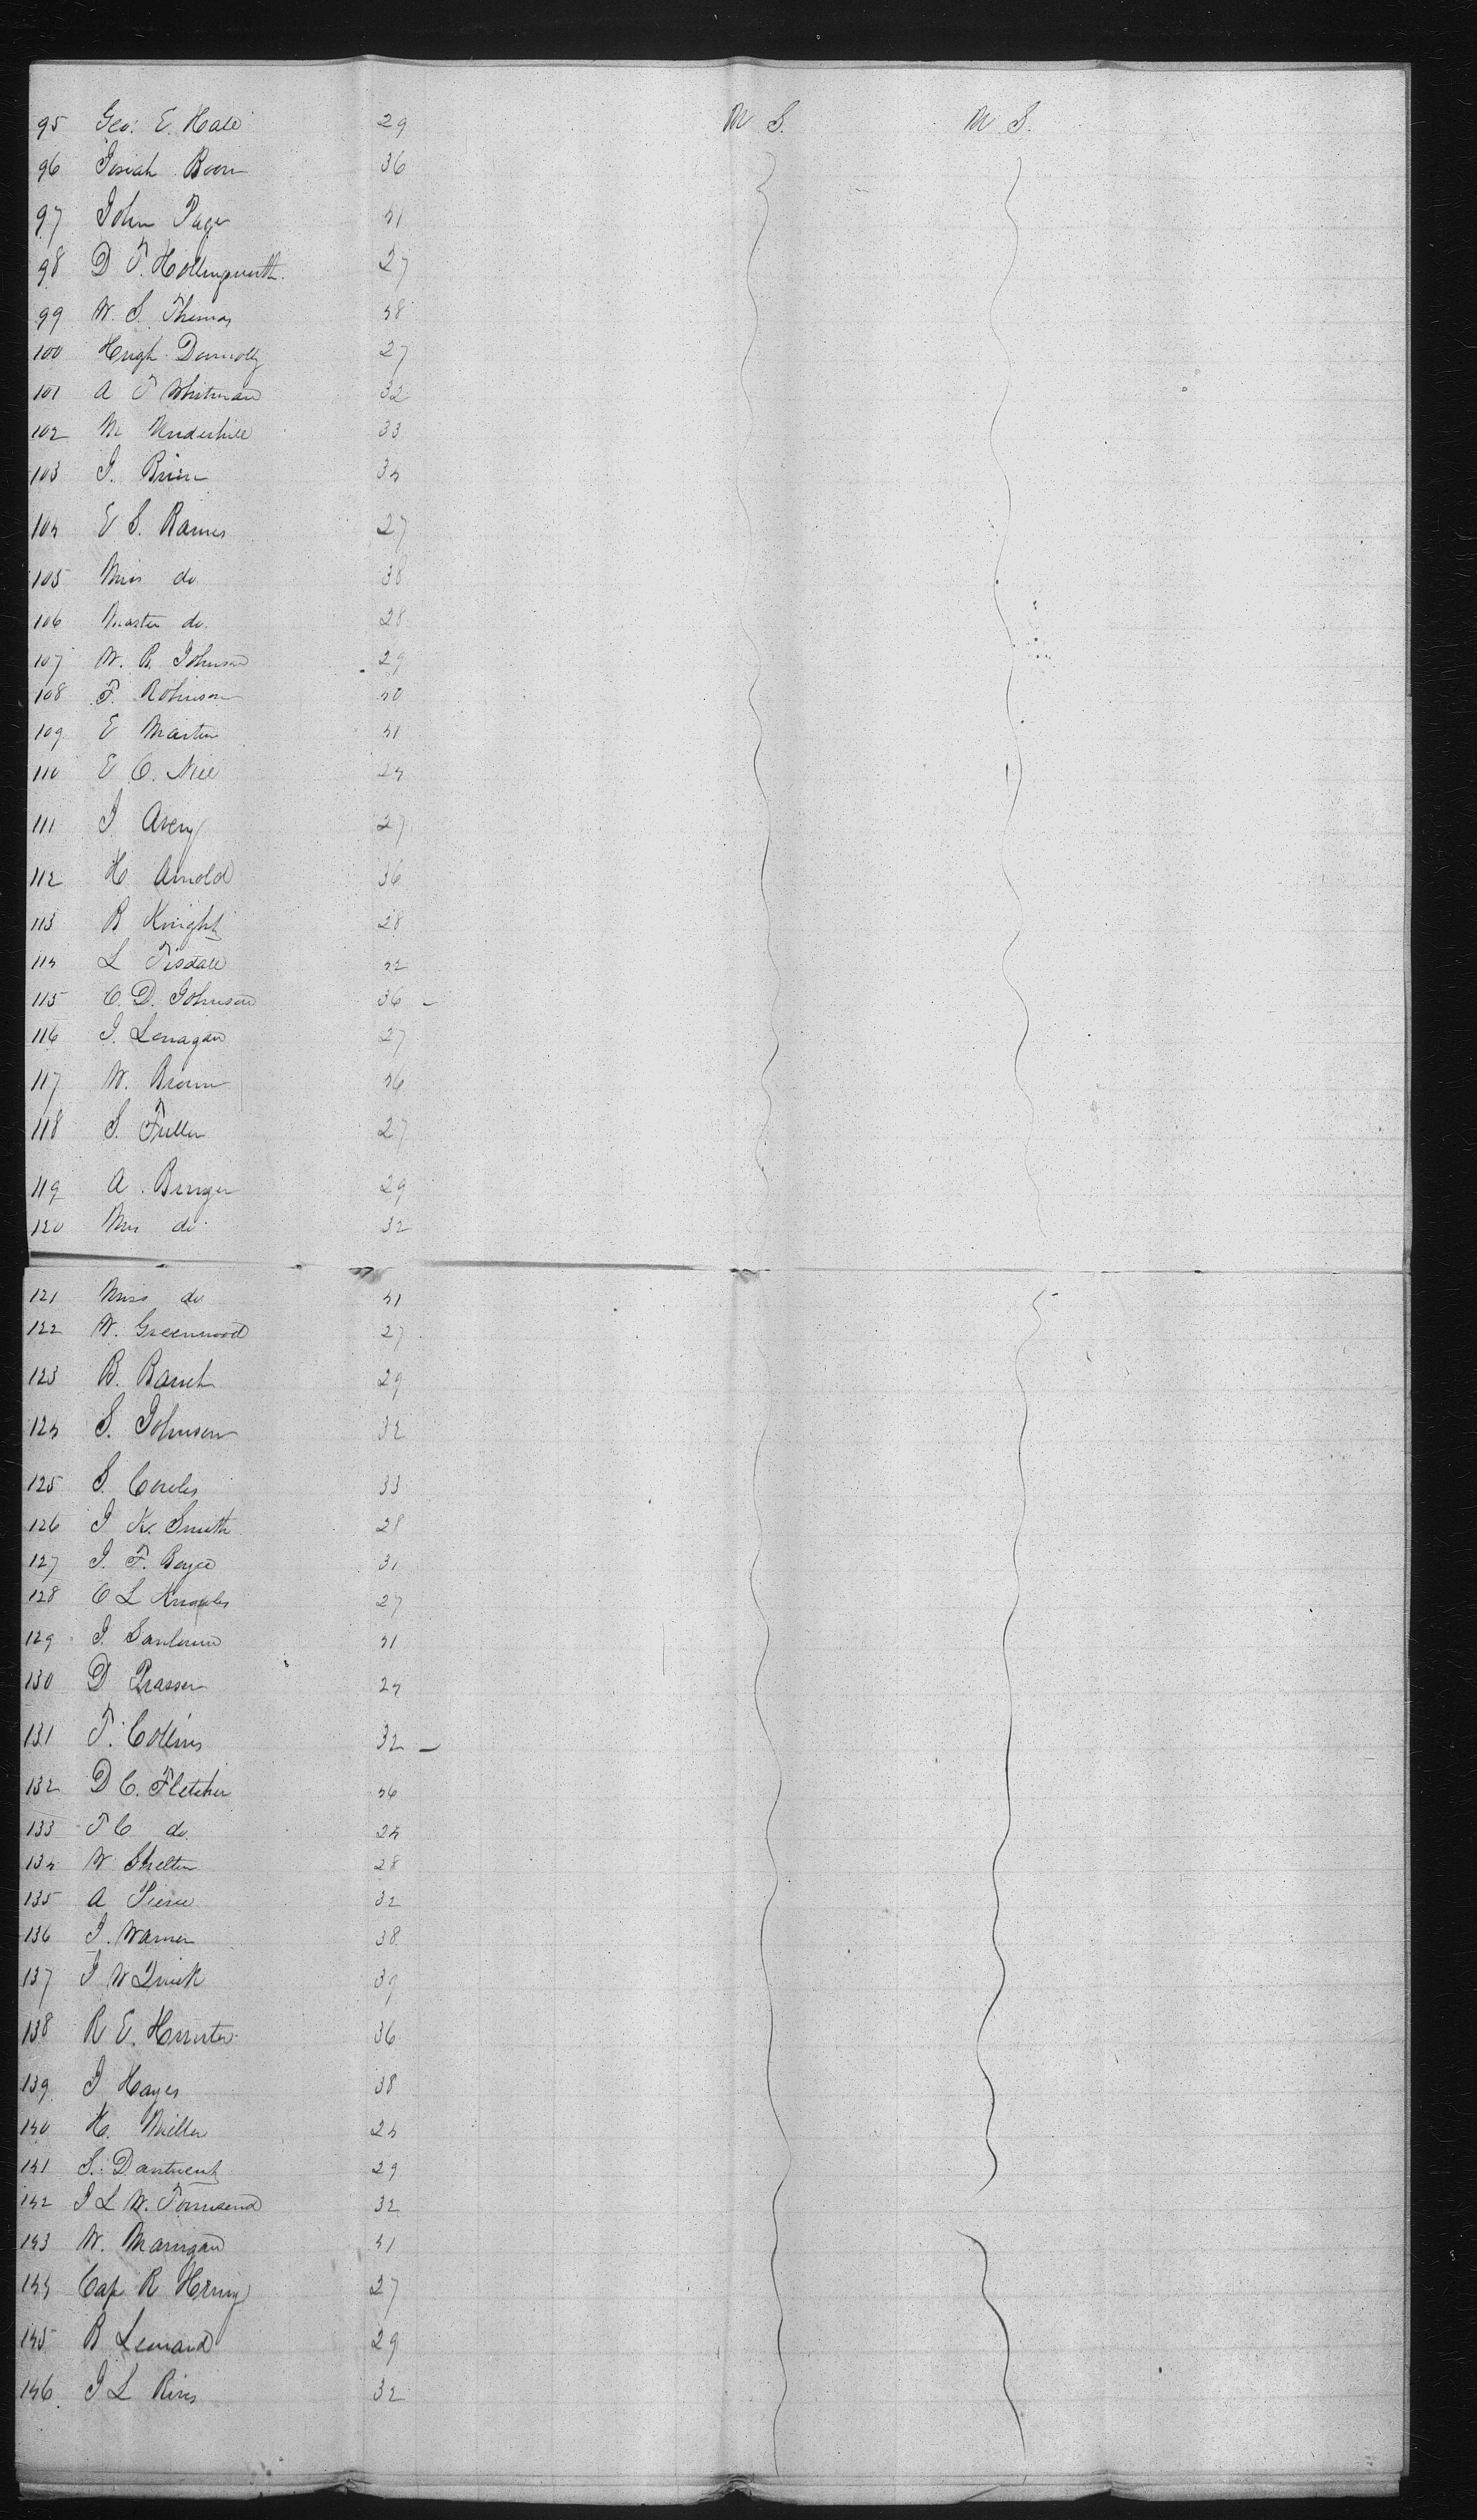 95 Geo: E. Hale 29 M S. M S.
96 Josiah Boon 36
97 John Page 41
98 D T. Hollingworth 27
99 W. S. Thomas 48
100 Hugh Donnolly 27
101 A T Whitman 32
102 M Underhill 33
103 J. Brien 34
104 E S. Raines 27
105 Mrs do 38
106 Master do. 28
107 W. R. Johnson 29
108 F. Robinson 40
109 E Martin 41
110 E C. Nee 24
111 J Avery 27
112 H Arnold 36
113 R Knight 28
114 L Tisdale 42
115 C. D. Johnson 36 -
116 J. Lonagan 27
117 W. Brown 46
118 S. Fuller 27
119 A. Bunger 29
120 Mrs do 32
121 Miss do 41
122 W. Greenwood 27
123 B. Baruch 29
124 S. Johnson 32
125 S. Cowles 33
126 J K. Smith 28
127 J. F. Boyce 31
128 C L Knowles 27
129 J. Sanborn 41
130 D Prasser 24
131 T. Collins 32 -
132 D C. Fletcher 46
133 T C do. 24
134 W Shelton 28
135 A Pierce 32
136 J. Warner 38
137 J W Quirk 39
138 R E. Hunter 36
139 J Hayes 38
140 H. Miller 24
141 S. 29
142 J L W. Townsend 32
143 W. Marrigan 41
144 Cap R Henry 27
145 B Lenard 29
146 J L Rives 32